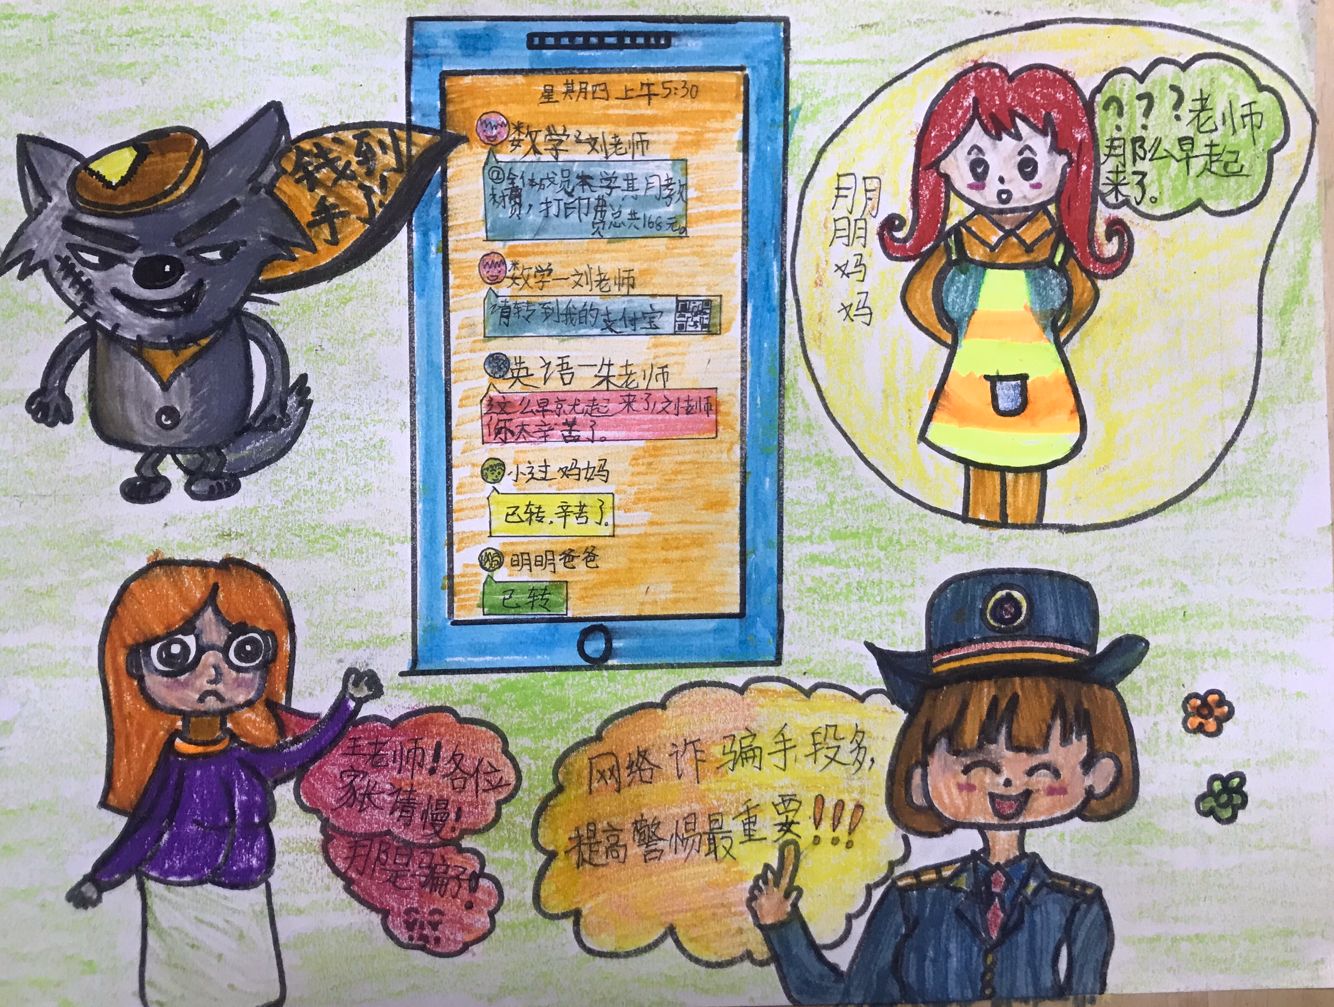 星期四上午5:30
数学刘老师
@全体成员本学其月考攵
材费,打印费
总共166元。
数学一刘老师
请转到我的支付宝
英语一朱老师
这么早就起来了,刘老师
你太辛苦了。
小过妈妈
已转,辛苦了。
明明爸爸
已转
钱到
手了!
朋
朋
妈
妈
???老师
那么早起
来了。
老师!各位
家长请慢!
那是骗子!
!!!
网络诈骗手段多,
提高警惕最重要!!!